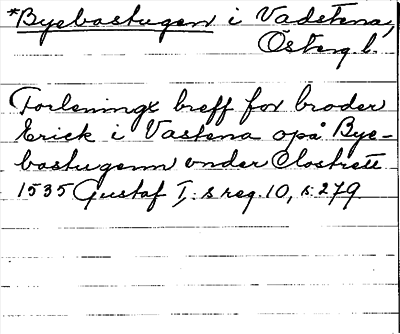 *Byebastugen i Vadstena,
Östergl.
Forlenings breff for broder
Erick i Vastena opå Bye-
bastugenn vnder Clostrett
1535 Gustaf I:s reg. 10, s. 279